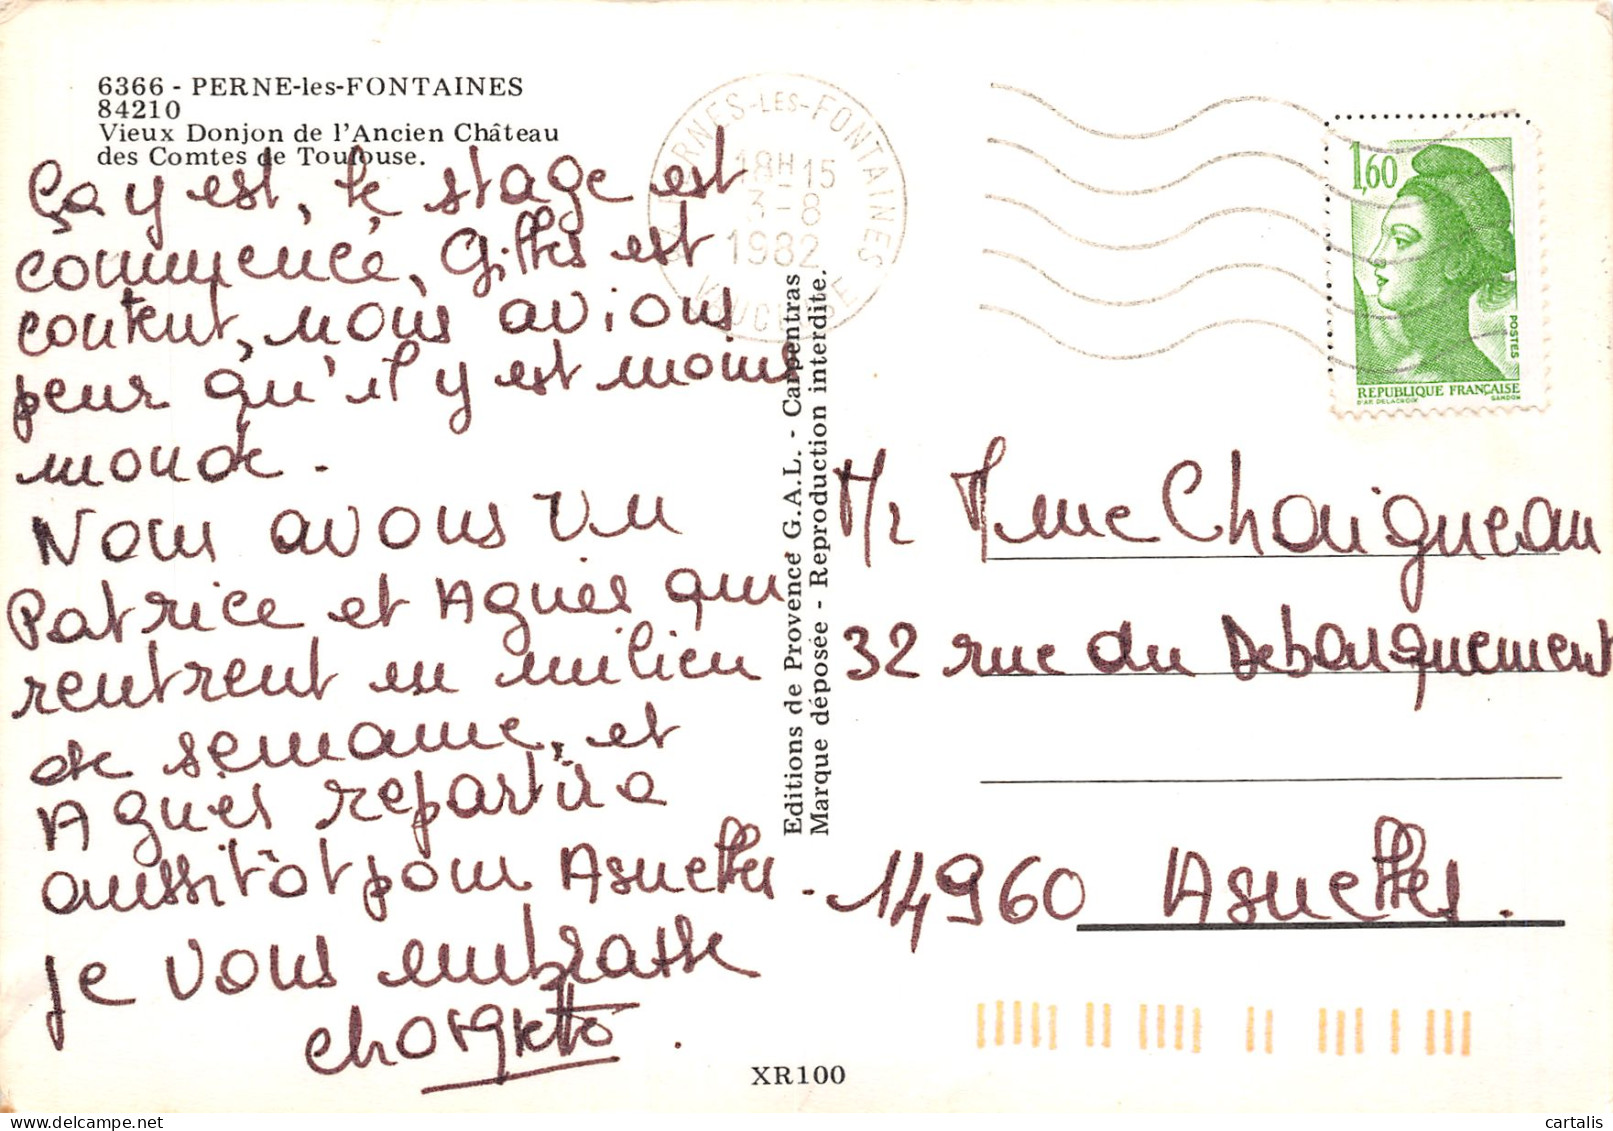 6366 - PERNE-les-FONTAINES
84210
Vieux Donjon de l'Ancien Château
des Comtes de Toulouse.
Ça y est, le stage est
commencé, Gilles est
content, nous avions
peur qu'il y est moins
monde.
Nous avons vu
Patrice et Agnès qui
rentrent en milieu
de semaine, et
Agnès repartira
aussitôt pour Asnelles.
je vous embrasse
PERNES-LES-FONTAINES
18H15
3-8
1982
VAUCLUSE
Editions de Provence G.A.L. - Carpentras
Marque déposée - Reproduction interdite.
1,60
POSTES
REPUBLIQUE FRANÇAISE
D'AP. DELACROIX GANDON
Mr Mme Chaigneau
32 rue du Debarquement
14960 Asnelles.
XR100
cartalis